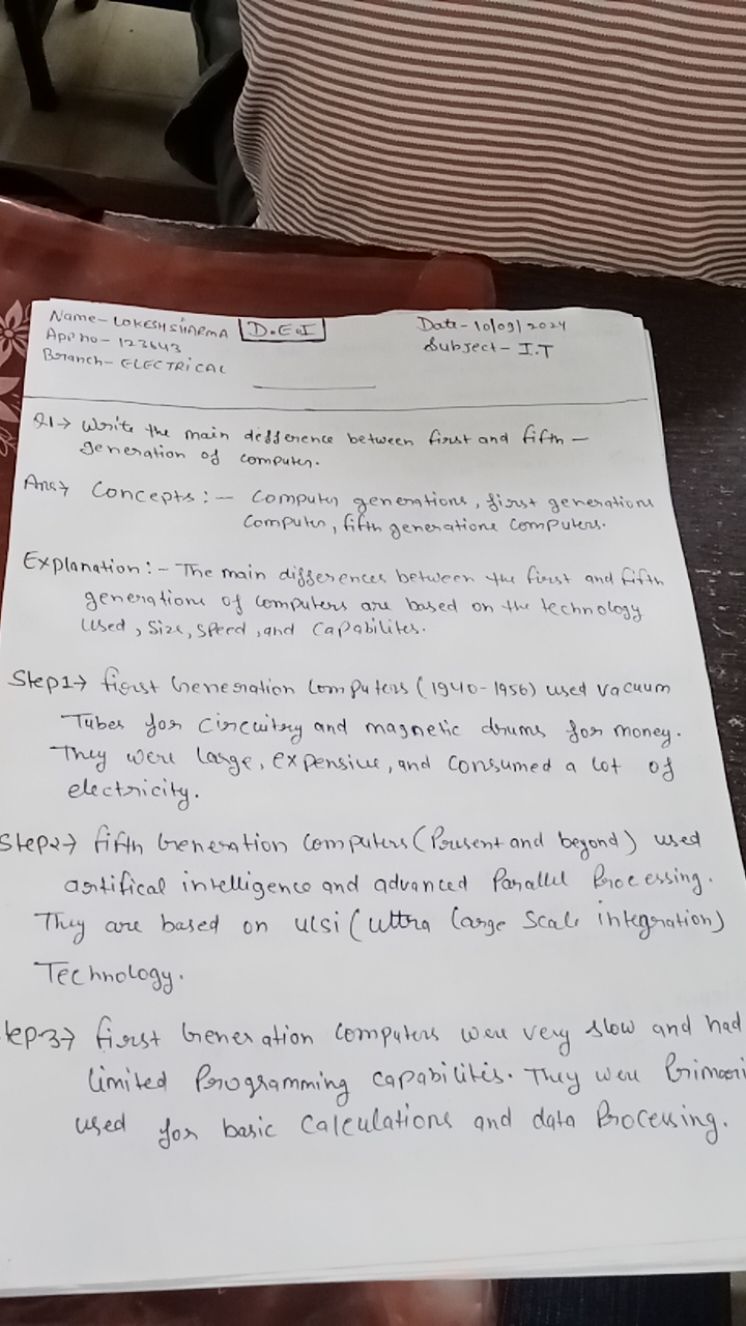 Name- LOKESH SHARMA
D.E.I
Date- 10/09/2024
App no- 123643
Subject- I.T
Branch- ELECTRICAL
Q1→ Write the main difference between first and fifth -
generation of computer.
Ans→ Concepts:- Computer generations, first generations
computer, fifth generations computers.
Explanation:- The main differences between the first and fifth
generations of computers are based on the technology
used, size, speed, and capabilites.
Step1→ first Generation computers (1940-1956) used vacuum
Tubes for circuitry and magnetic drums for money.
They were large, expensive, and consumed a lot of
electricity.
Step2→ fifth Generation computers (Present and beyond) used
artifical intelligence and advanced Parallel Processing.
They are based on ulsi (ultra large scale integration)
Technology.
tep3→ first Generation computers were very slow and had
limited Programming capabilities. They were Primari
used for basic calculations and data Processing.